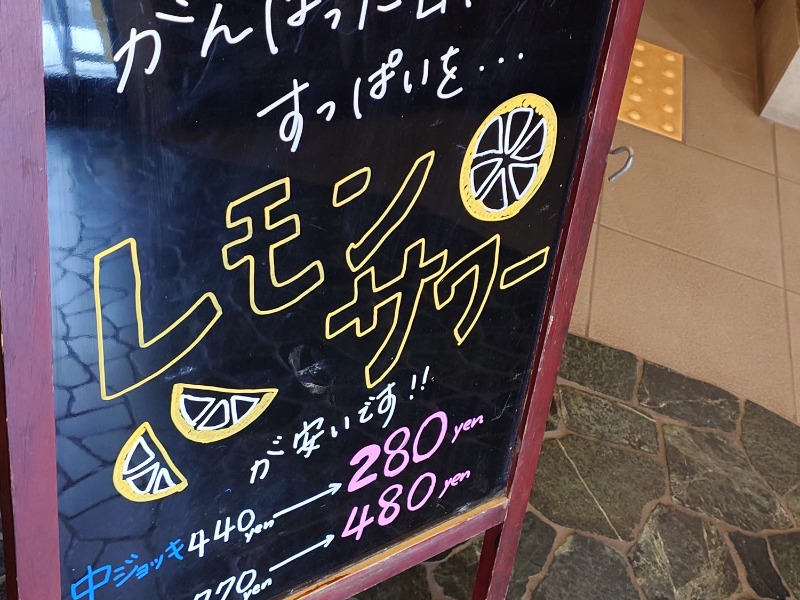 がんばった
すっぱいを...
レモン
サワー
が安いです!!
中ジョッキ 440yen → 280yen
770yen → 480yen